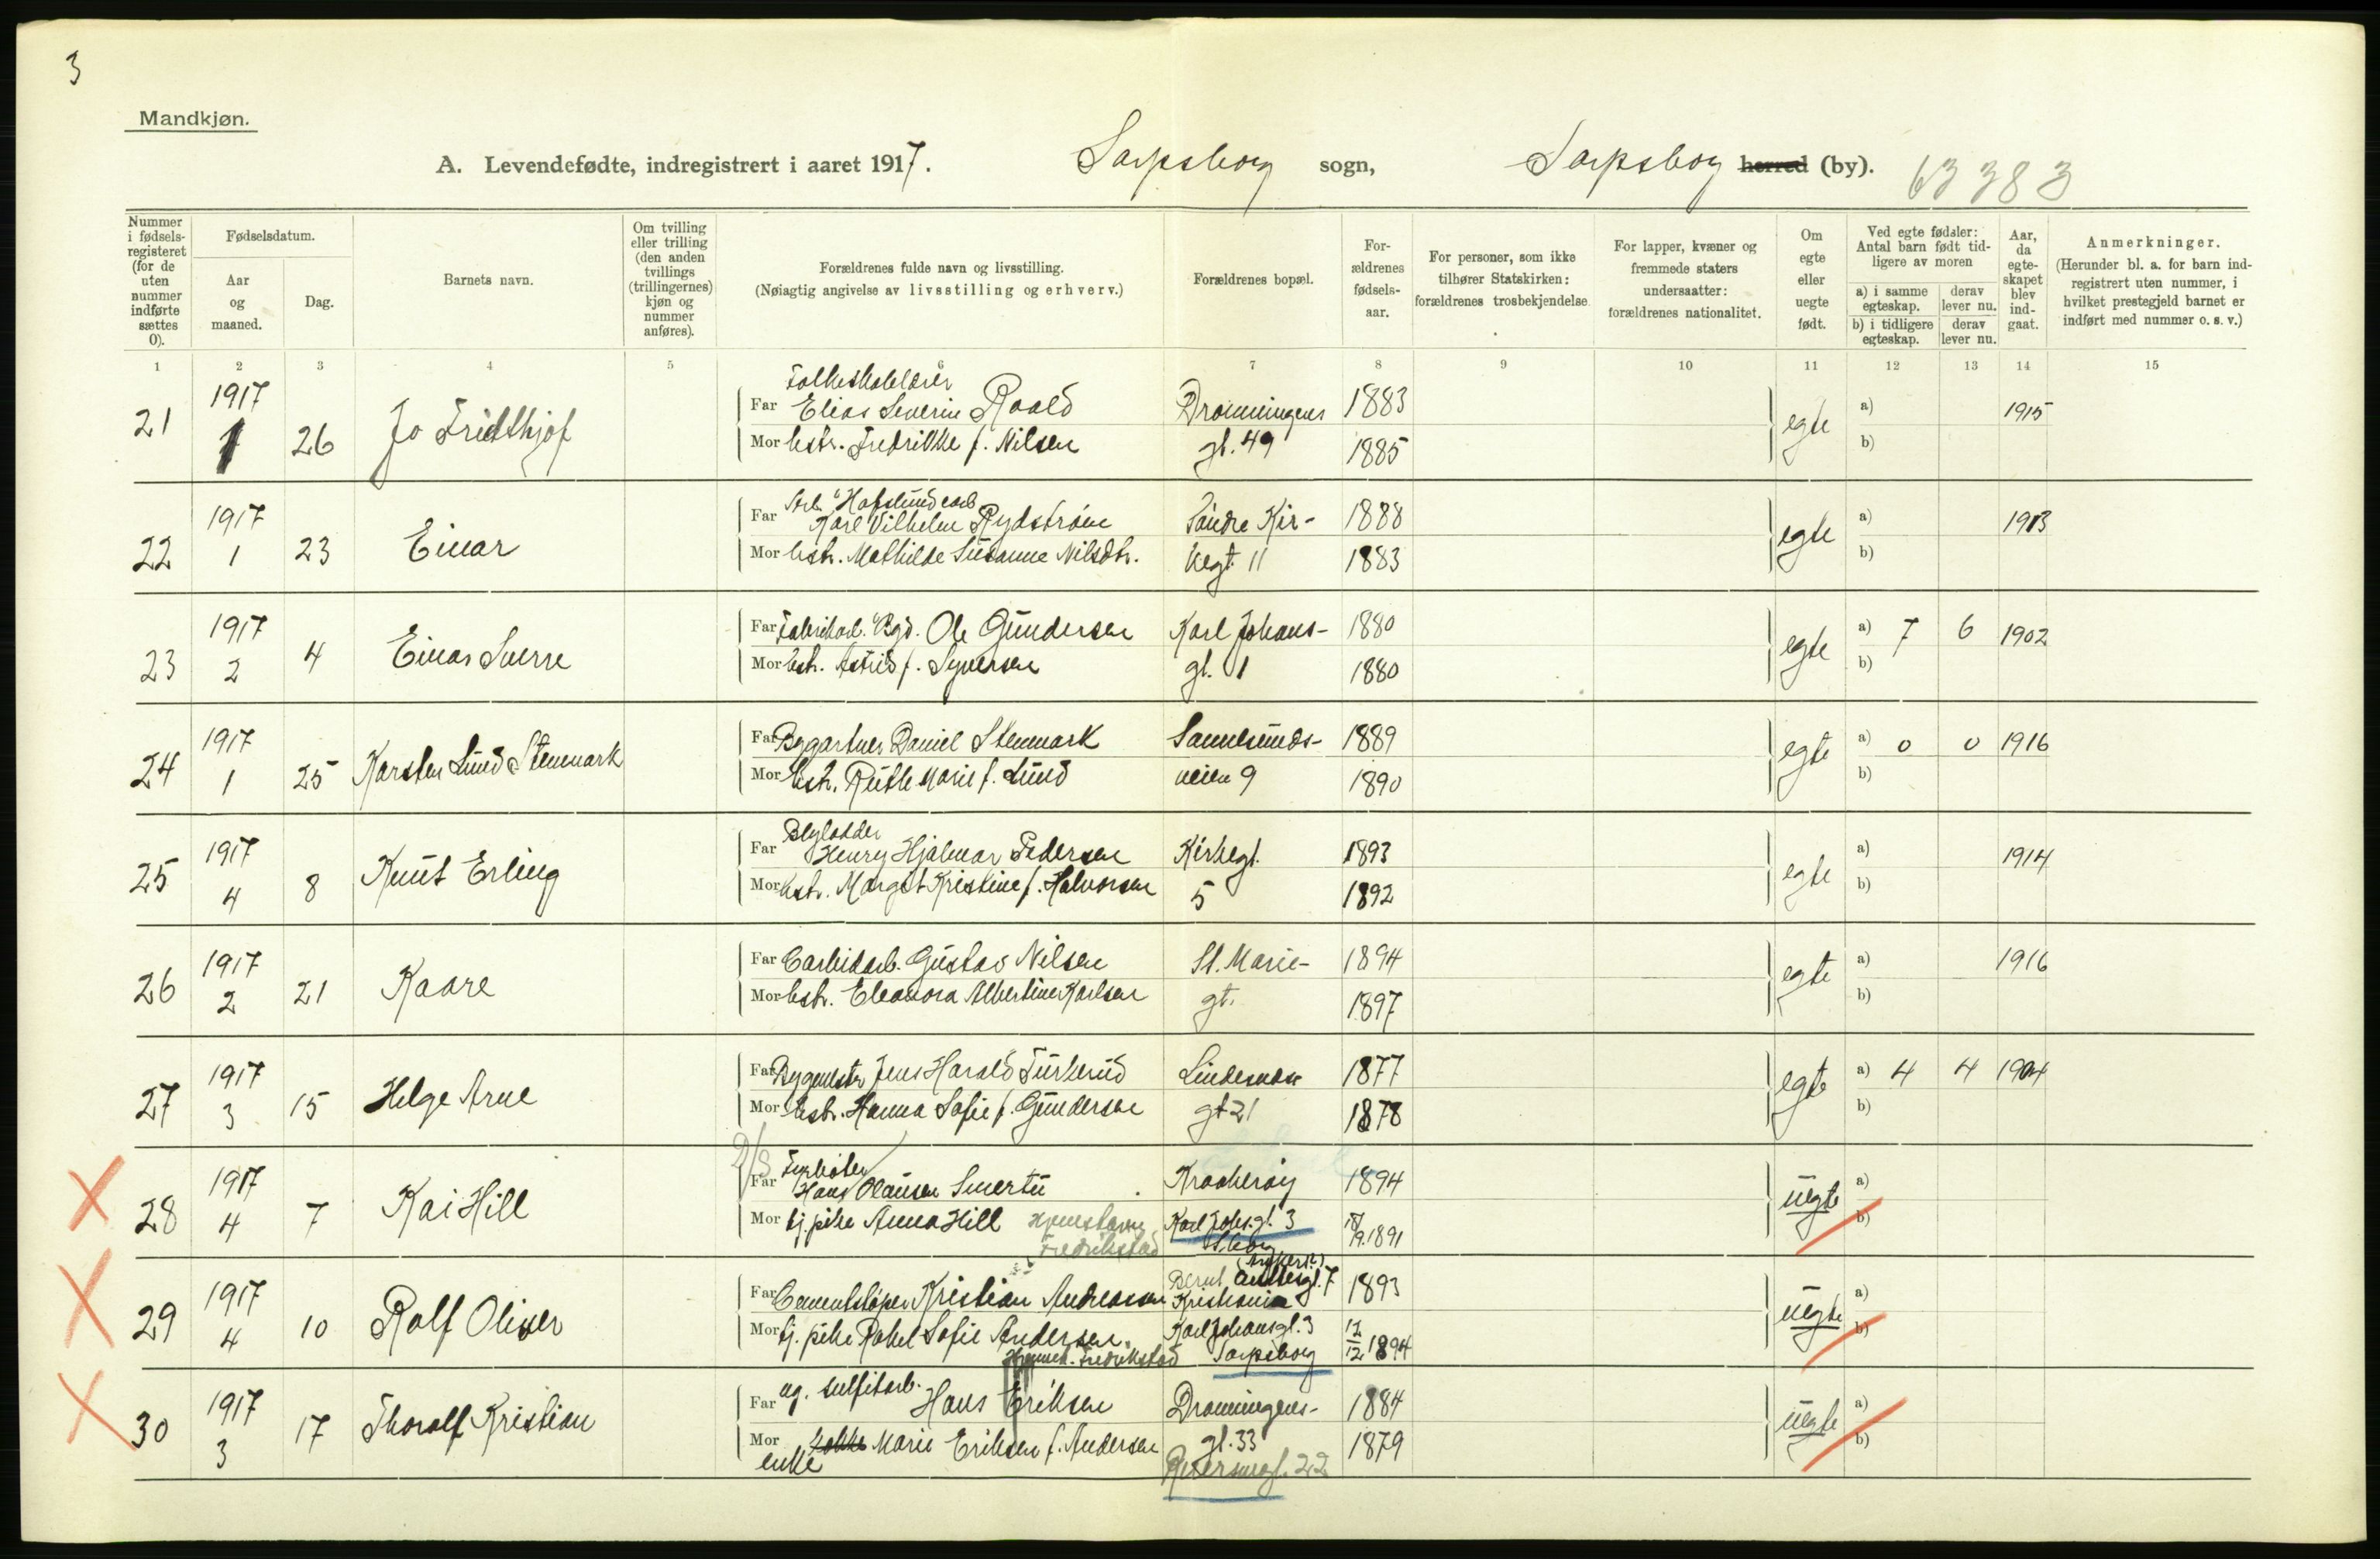 3
Mandkjøn.
A. Levendefødte, indregistrert i aaret 1917. Sarpsborg sogn, Sarpsborg herred (by). 63383
Nummer i fødselsregisteret (for de uten nummer indførte sættes 0).
Fødselsdatum.
Aar og maaned.
Dag.
Barnets navn.
Om tvilling eller trilling (den anden tvillings (trillingernes) kjøn og nummer anføres).
Forældrenes fulde navn og livsstilling.
(Nøiagtig angivelse av livsstilling og erhverv.)
Forældrenes bopæl.
For-ældrenes fødsels-aar.
For personer, som ikke tilhører Statskirken: forældrenes trosbekjendelse.
For lapper, kvæner og fremmede staters undersaatter: forældrenes nationalitet.
Om egte eller uegte født.
Ved egte fødsler: Antal barn født tidligere av moren
a) i samme egteskap. derav lever nu.
b) i tidligere egteskap. derav lever nu.
Aar, da egte-skapet blev ind-gaat.
Anmerkninger.
(Herunder bl. a. for barn indregistrert uten nummer, i hvilket prestegjeld barnet er indført med nummer o. s. v.)
1 2 3 4 5 6 7 8 9 10 11 12 13 14 15
21 1917 1 26 Jo Fridthjof
Folkeskolelærer
Far Elias Severin Roald Dronningens 1883 egte a) 1915
Mor hstr. Fredrikke f. Nilsen gt. 49 1885 b)
22 1917 1 23 Einar
Arb. Hafslund carb
Far Karl Vilhelm Rydstrøm Søndre Kir- 1888 egte a) 1913
Mor hstr. Mathilde Susanne Nilsdtr. kegt. 11 1883 b)
23 1917 2 4 Einar Sverre
Far Fabrikarb. Bgd. Ole Gundersen Karl Johans- 1880 egte a) 7 6 1902
Mor hstr. Astrid f. Syversen gt. 1 1880 b)
24 1917 1 25 Karsten Lund Stenmark
Far Bygartner Daniel Stenmark Sannesunds- 1889 egte a) 0 0 1916
Mor hstr. Ruth Marie f. Lund veien 9 1890 b)
25 1917 4 8 Knut Erling
Blylodder
Far Henry Hjalmar Pedersen Kirkegt. 1893 egte a) 1914
Mor hstr. Margit Kristine f. Halvorsen 5 1892 b)
26 1917 2 21 Kaare
Far Carbidarb. Gustav Nilsen St. Marie- 1894 egte a) 1916
Mor hstr. Eleonora Albertine Karlsen gt. 1897 b)
27 1917 3 15 Helge Arne
Far Bygmester Jens Harald Turkerud Lindeman 1877 egte a) 4 4 1904
Mor hstr. Hanna Sofie f. Gundersen gt 21 1878 b)
28 1917 4 7 Kai Hill
Fyrbøter
Far Hans Olausen Smertu Kraakerøy 1894 uegte a)
Mor tj. pike Anna Hill Karl Johs. gt. 3 1891 b)
Fredrikstad S.borg
29 1917 4 10 Rolf Oliver
Far Cementstøper Kristian Andreassen Bernt Ankersgt. 7 Kristiania 1893 uegte a)
Mor tj. pike Rakel Sofie Andersen Karl Johansgt. 3 12/12 1894 b)
Fredrikstad Sarpsborg
30 1917 3 17 Thoralf Kristian
Far ug. sulfitarb. Hans Eriksen Dronningens- 1884 uegte a)
Mor Marie Eriksen f. Andersen gt. 33 1879 b)
enke